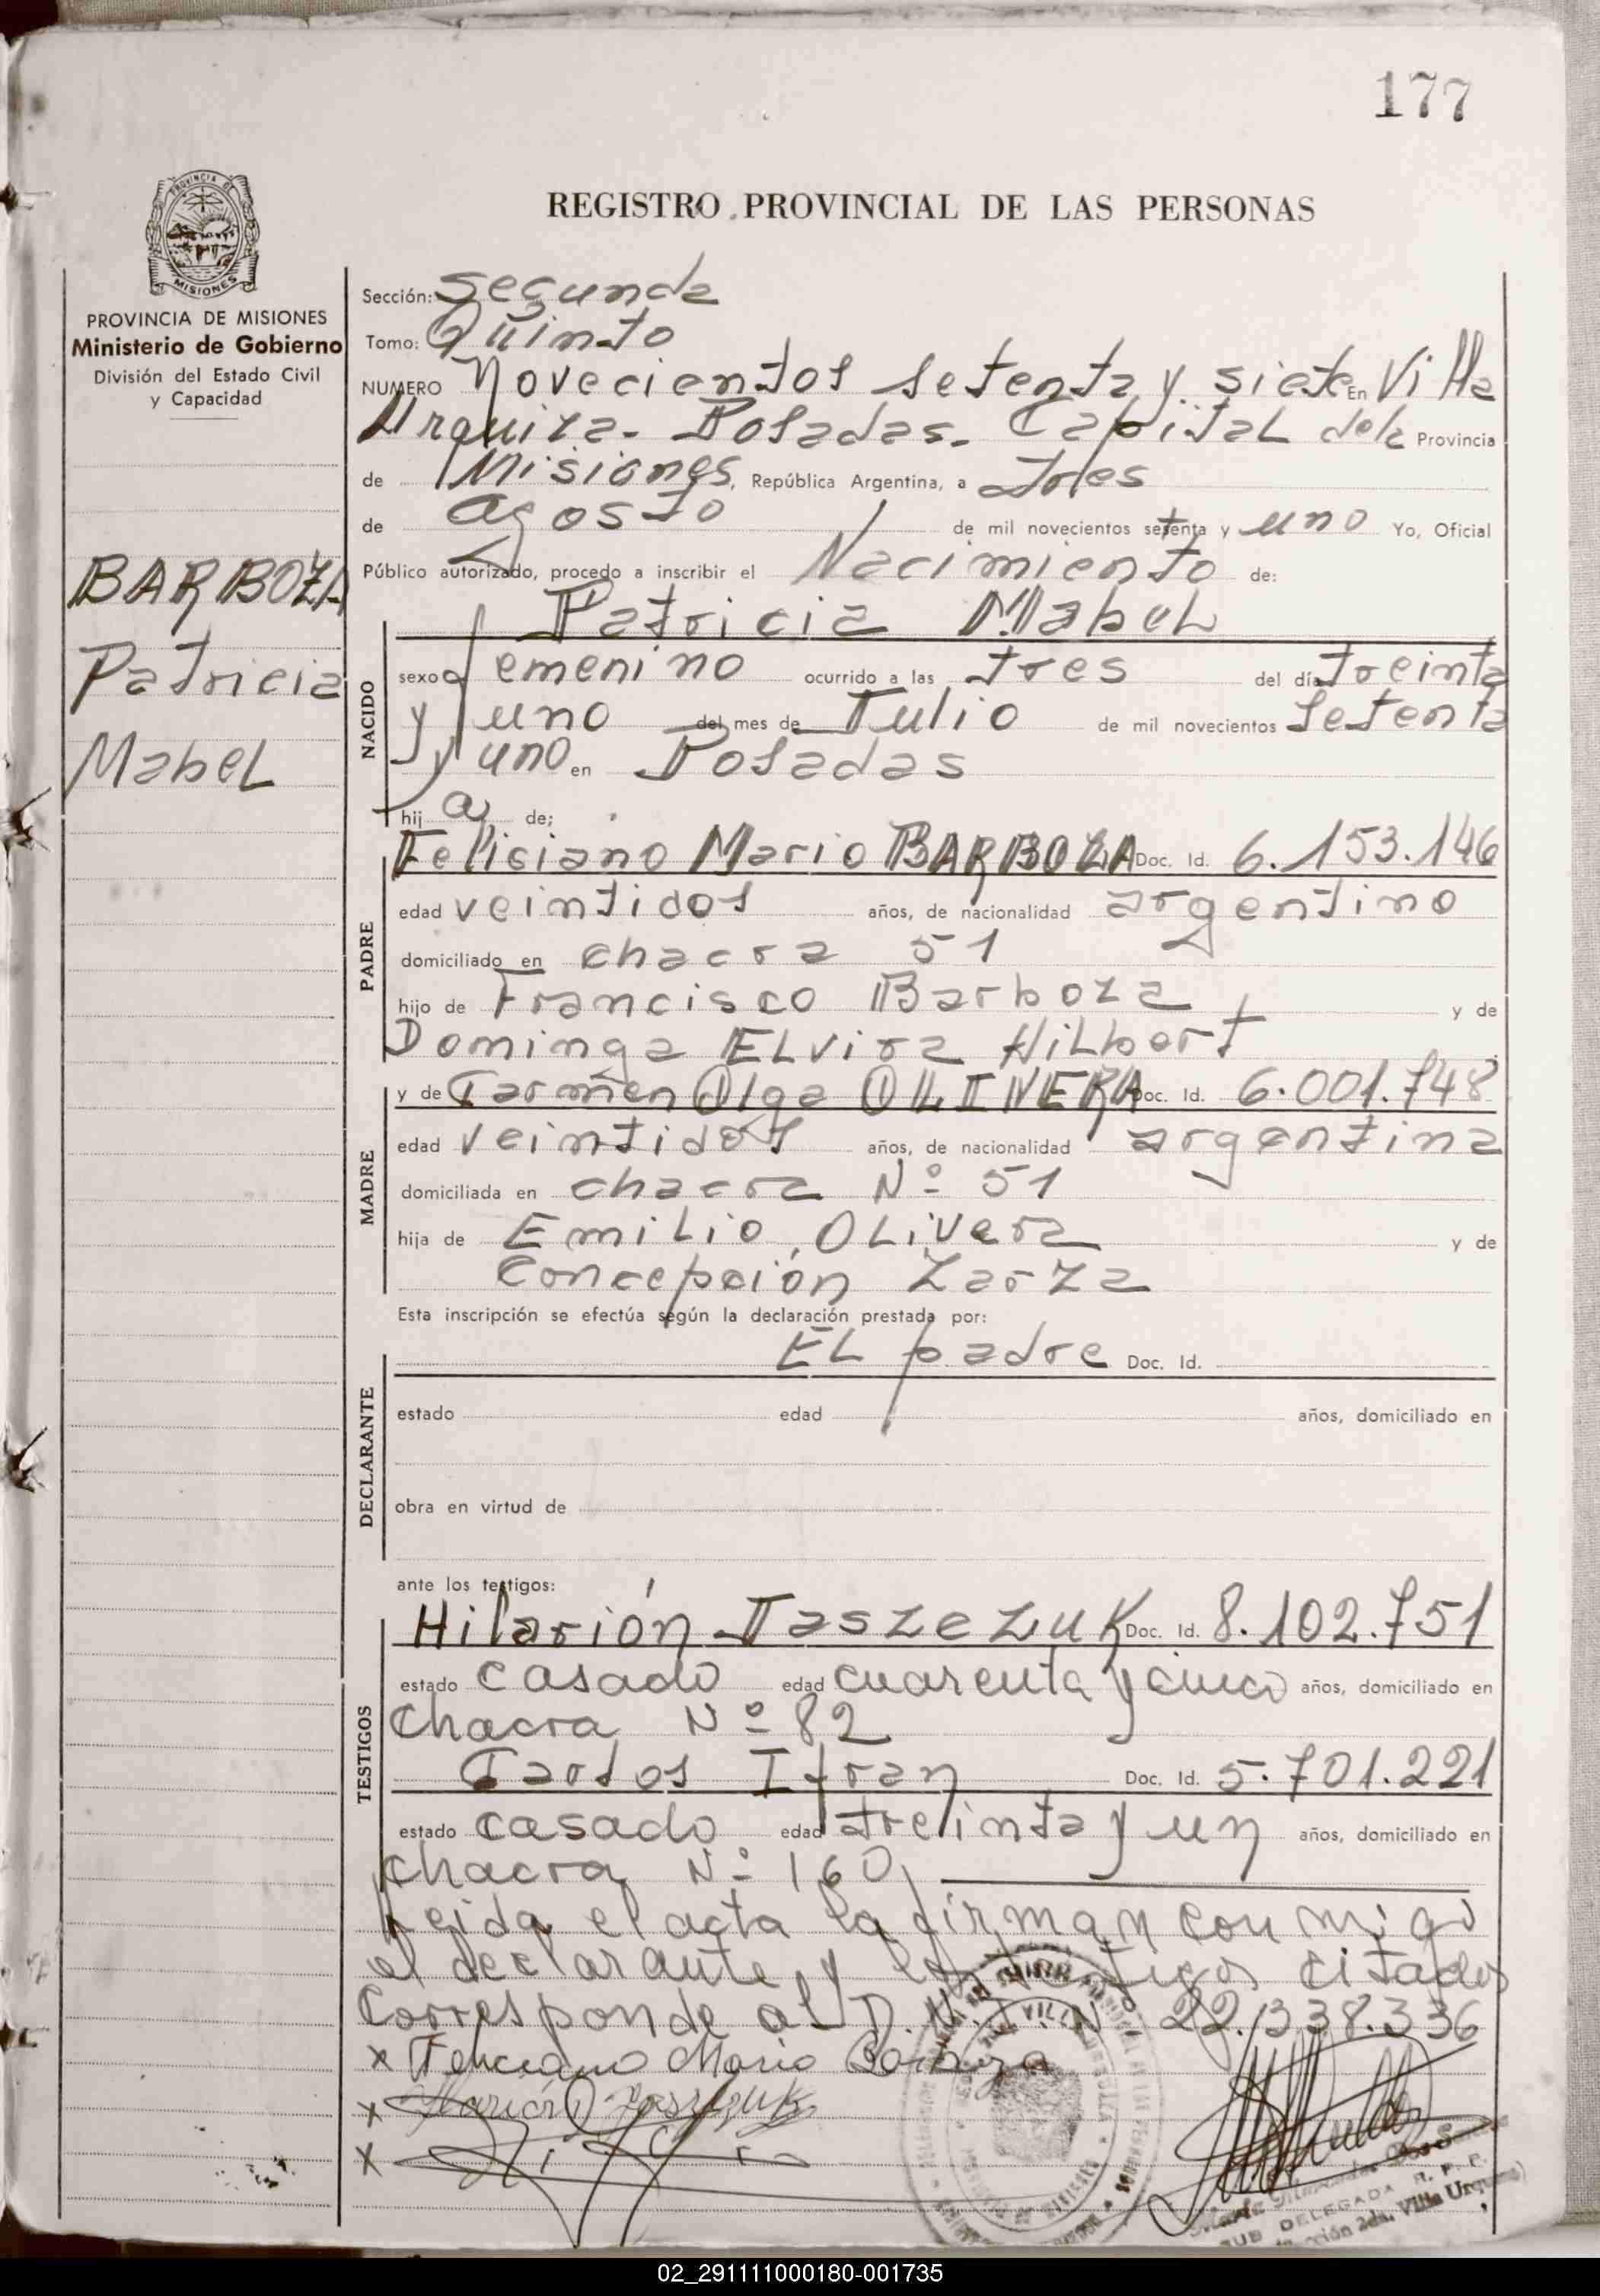 177
PROVINCIA DE
MISIONES
PROVINCIA DE MISIONES
Ministerio de Gobierno
División del Estado Civil
y Capacidad
BARBOZA
Patricia
Mabel
REGISTRO PROVINCIAL DE LAS PERSONAS
Sección: Segunda
Tomo: Quinto
NUMERO Novecientos setenta y siete En Villa
Urquiza - Posadas - Capital dela Provincia
de Misiones, República Argentina, a tres
de agosto de mil novecientos setenta y uno Yo, Oficial
Público autorizado, procedo a inscribir el Nacimiento de:
Patricia Mabel
NACIDO
sexo femenino ocurrido a las tres del día treinta
y uno del mes de Julio de mil novecientos setenta
y uno en Posadas
hija de:
Feliciano Mario BARBOZA Doc. Id. 6.153.146
PADRE
edad veintidos años, de nacionalidad argentino
domiciliado en chacra 51
hijo de Francisco Barboza y de
Dominga Elvira Hilbert
y de Carmen Olga OLIVERA Doc. Id. 6.001.748
MADRE
edad veintidos años, de nacionalidad argentina
domiciliada en chacra Nº 51
hija de Emilio Olivera y de
Concepción Zarza
Esta inscripción se efectúa según la declaración prestada por:
El padre Doc. Id.
DECLARANTE
estado edad años, domiciliado en
obra en virtud de
ante los testigos:
Hilarión Jaszezuk Doc. Id. 8.102.751
TESTIGOS
estado casado edad cuarenta y cinco años, domiciliado en
chacra Nº 82
Carlos Ifran Doc. Id. 5.701.221
estado casado edad treinta y un años, domiciliado en
chacra Nº 160,
Leida el acta la firman con migo
el declarante y los testigos citados
Corresponde al D.N.I. Nº 22.338.336
x Feliciano Mario Barboza
x
x
R. P. P.
SUB DELEGADA
Sección 2da. Villa Urquiza)
02_291111000180-001735